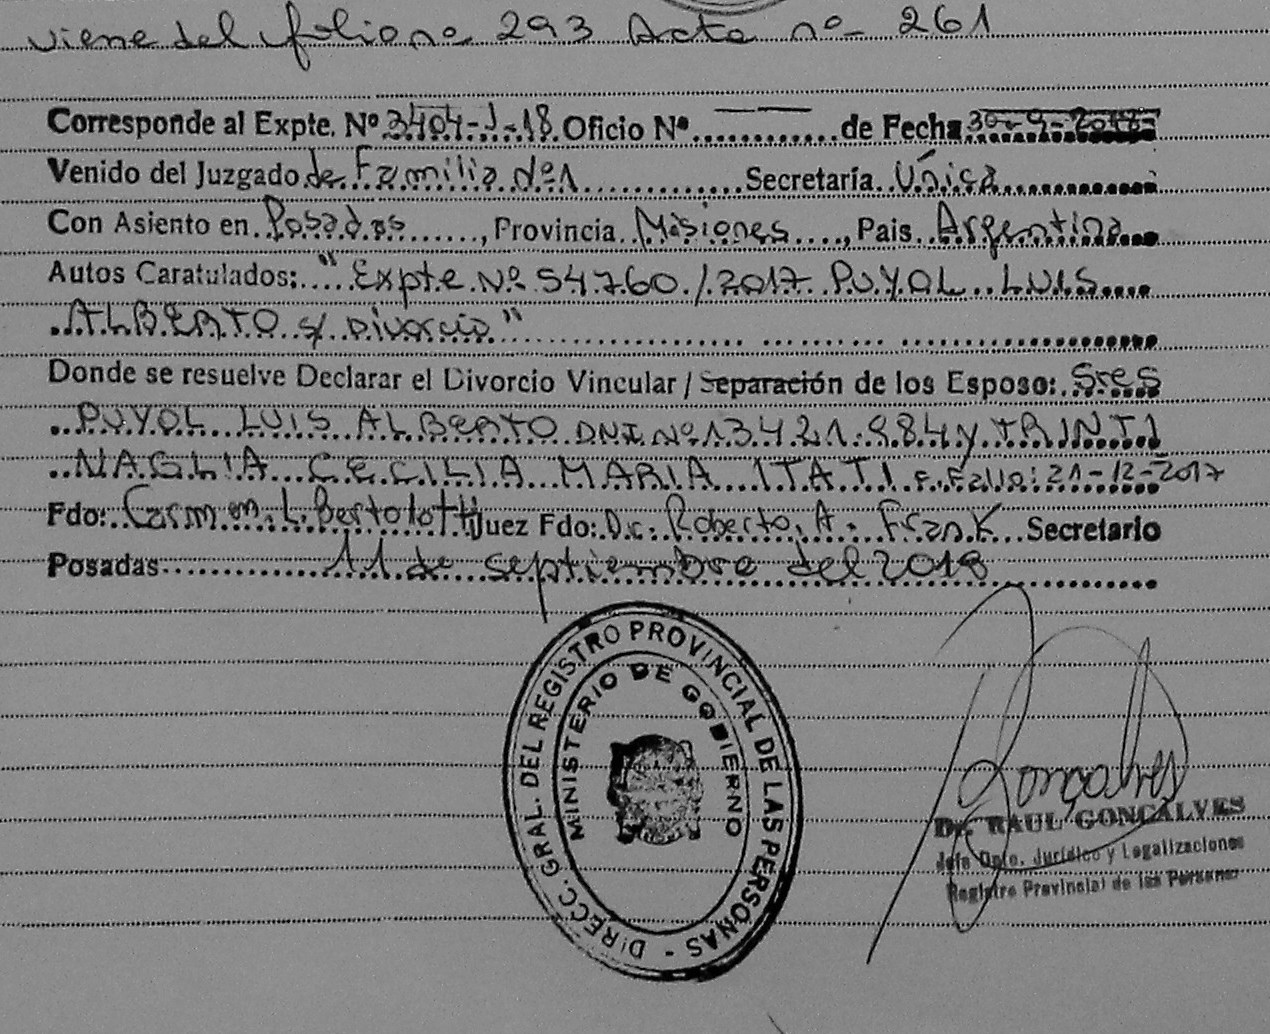 viene del folio nº 293 Acta nº 261
Corresponde al Expte. Nº 3404-J-18 Oficio Nº ............ de Fecha 30-9-2018
Venido del Juzgado de Familia Nº1 ............ Secretaría Única
Con Asiento en Posadas ......, Provincia Misiones ...., Pais Argentina
Autos Caratulados: "Expte Nº 54760/2017 PUYOL LUIS
ALBERTO s/ Divorcio"
Donde se resuelve Declarar el Divorcio Vincular / Separación de los Esposo: Sres
PUYOL LUIS ALBERTO DNI Nº 13.421.984 y TRINTI
NAGLIA CECILIA MARIA ITATI F. Fallo: 21-12-2017
Fdo: Carmen L. Bertolotti Juez Fdo: Dr. Roberto A. Frank Secretario
Posadas 11 de septiembre del 2018
DIRECC. GRAL. DEL REGISTRO PROVINCIAL DE LAS PERSONAS -
MINISTERIO DE GOBIERNO
Goncalves
Dr. RAUL GONCALVES
Jefe Dpto. Jurídico y Legalizaciones
Registro Provincial de las Personas